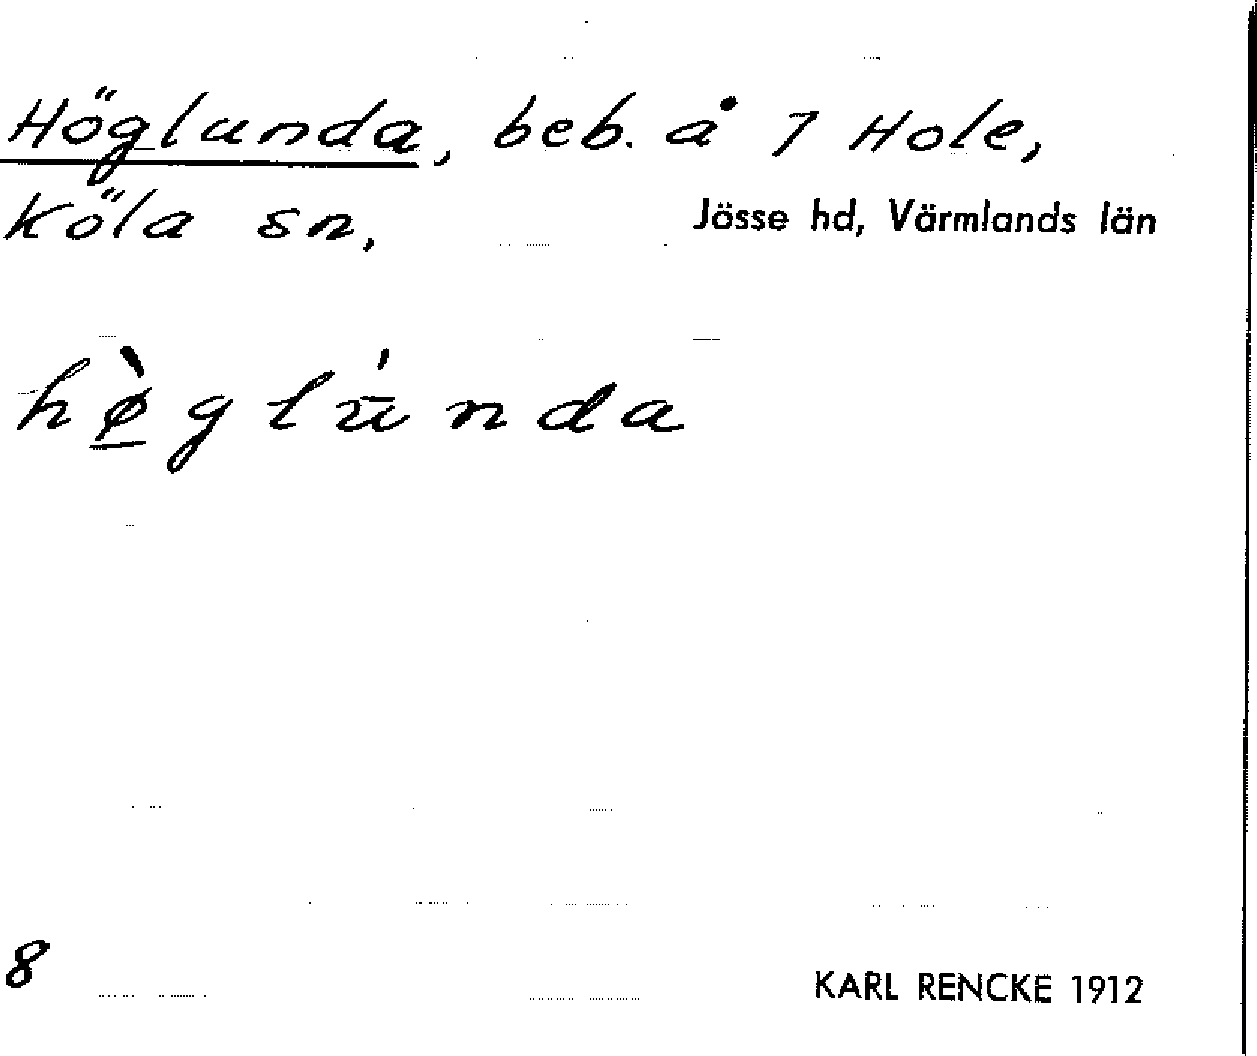 Höglunda, beb. å 7 Hole,
Köla sn, Jösse hd, Värmlands län
hø̲̀glu̍nda
8
KARL RENCKE 1912